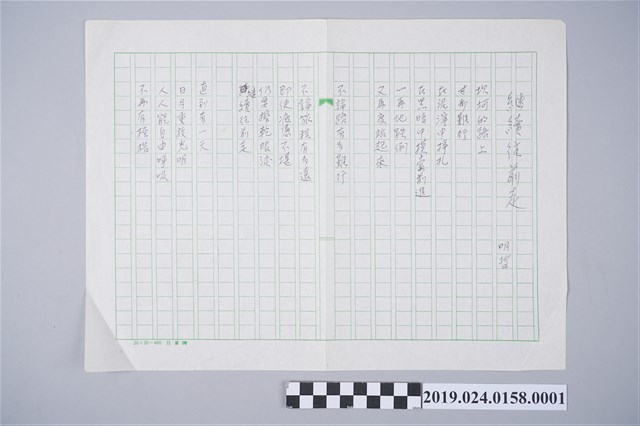 繼續往前走
明哲
坎坷的路上
寸步難行
在泥濘中掙扎
在黑暗中摸索前進
一再地跌倒
又再度站起來
不論路有多難行
不論家鄉有多遠
即使疲憊不堪
仍要擦乾眼淚
繼續往前走
直到有一天
日月重放光明
人人能自由呼吸
不再有桎梏
2019.024.0158.0001